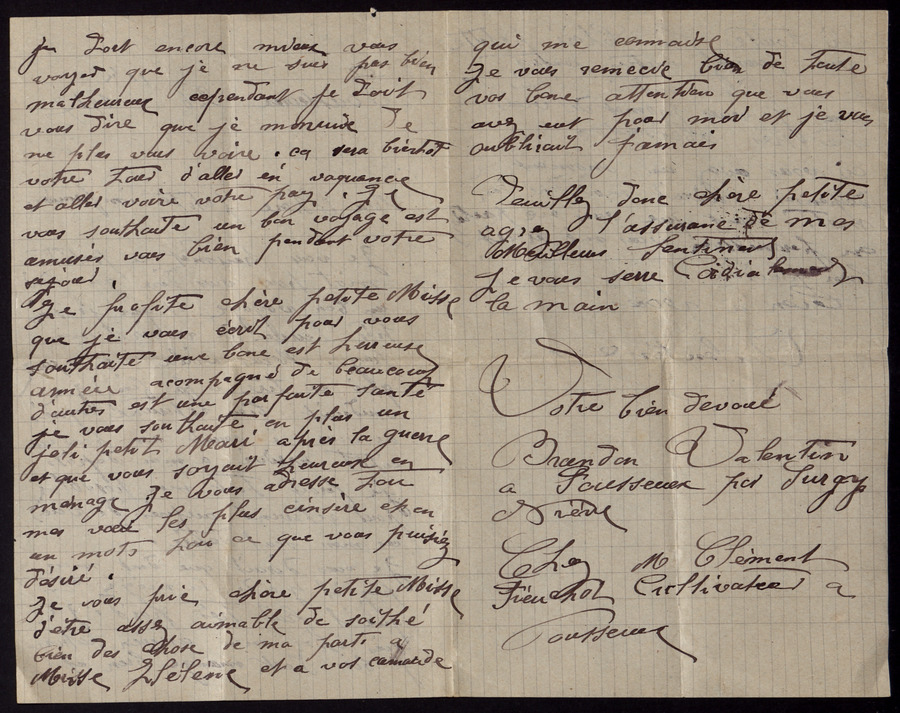 je doit encore mieux vous
voyez que je ne suis pas bien
malheureux cependant je doit
vous dire que je m'ennuie de
ne plus vous voire. ca sera bientot
votre tour d'aller en vaquance
et aller voire votre pay. Je
vous southaite un bon voyage est
amusés vous bien pendant votre
sejour.
Je profite chère petite Misse
que je vous ecrit pour vous
southaité une bone est heureuse
année acompagné de beaucoup
d'autres est une parfaite santé
je vous southaite en plus un
joli petit Mari après la guerre
et que vous soyait heureuse en
ménage Je vous adresse tou
mes vœux les plus cinsère et en
un mots tou ce que vous puisiez
désiré.
Je vous prie chère petite Misse
d'être assez aimable de soithé
bien des chose de ma parts a
Misse Hélène et a vos camarde
qui me connaise
Je vous remecie bien de toute
vos bone attention que vous
avez eut pour moi et je vous
oublirait jamais
Veuillez donc chère petite
agrez l'assurance de mes
Meilleurs Sentiments
Je vous serre Cordialement
la main
Votre bien devoué
Brandon Valentin
a Fousseux par Surgy
Nièvre
Chez M Clément
Fieuchot Cultivateur a
Fousseux